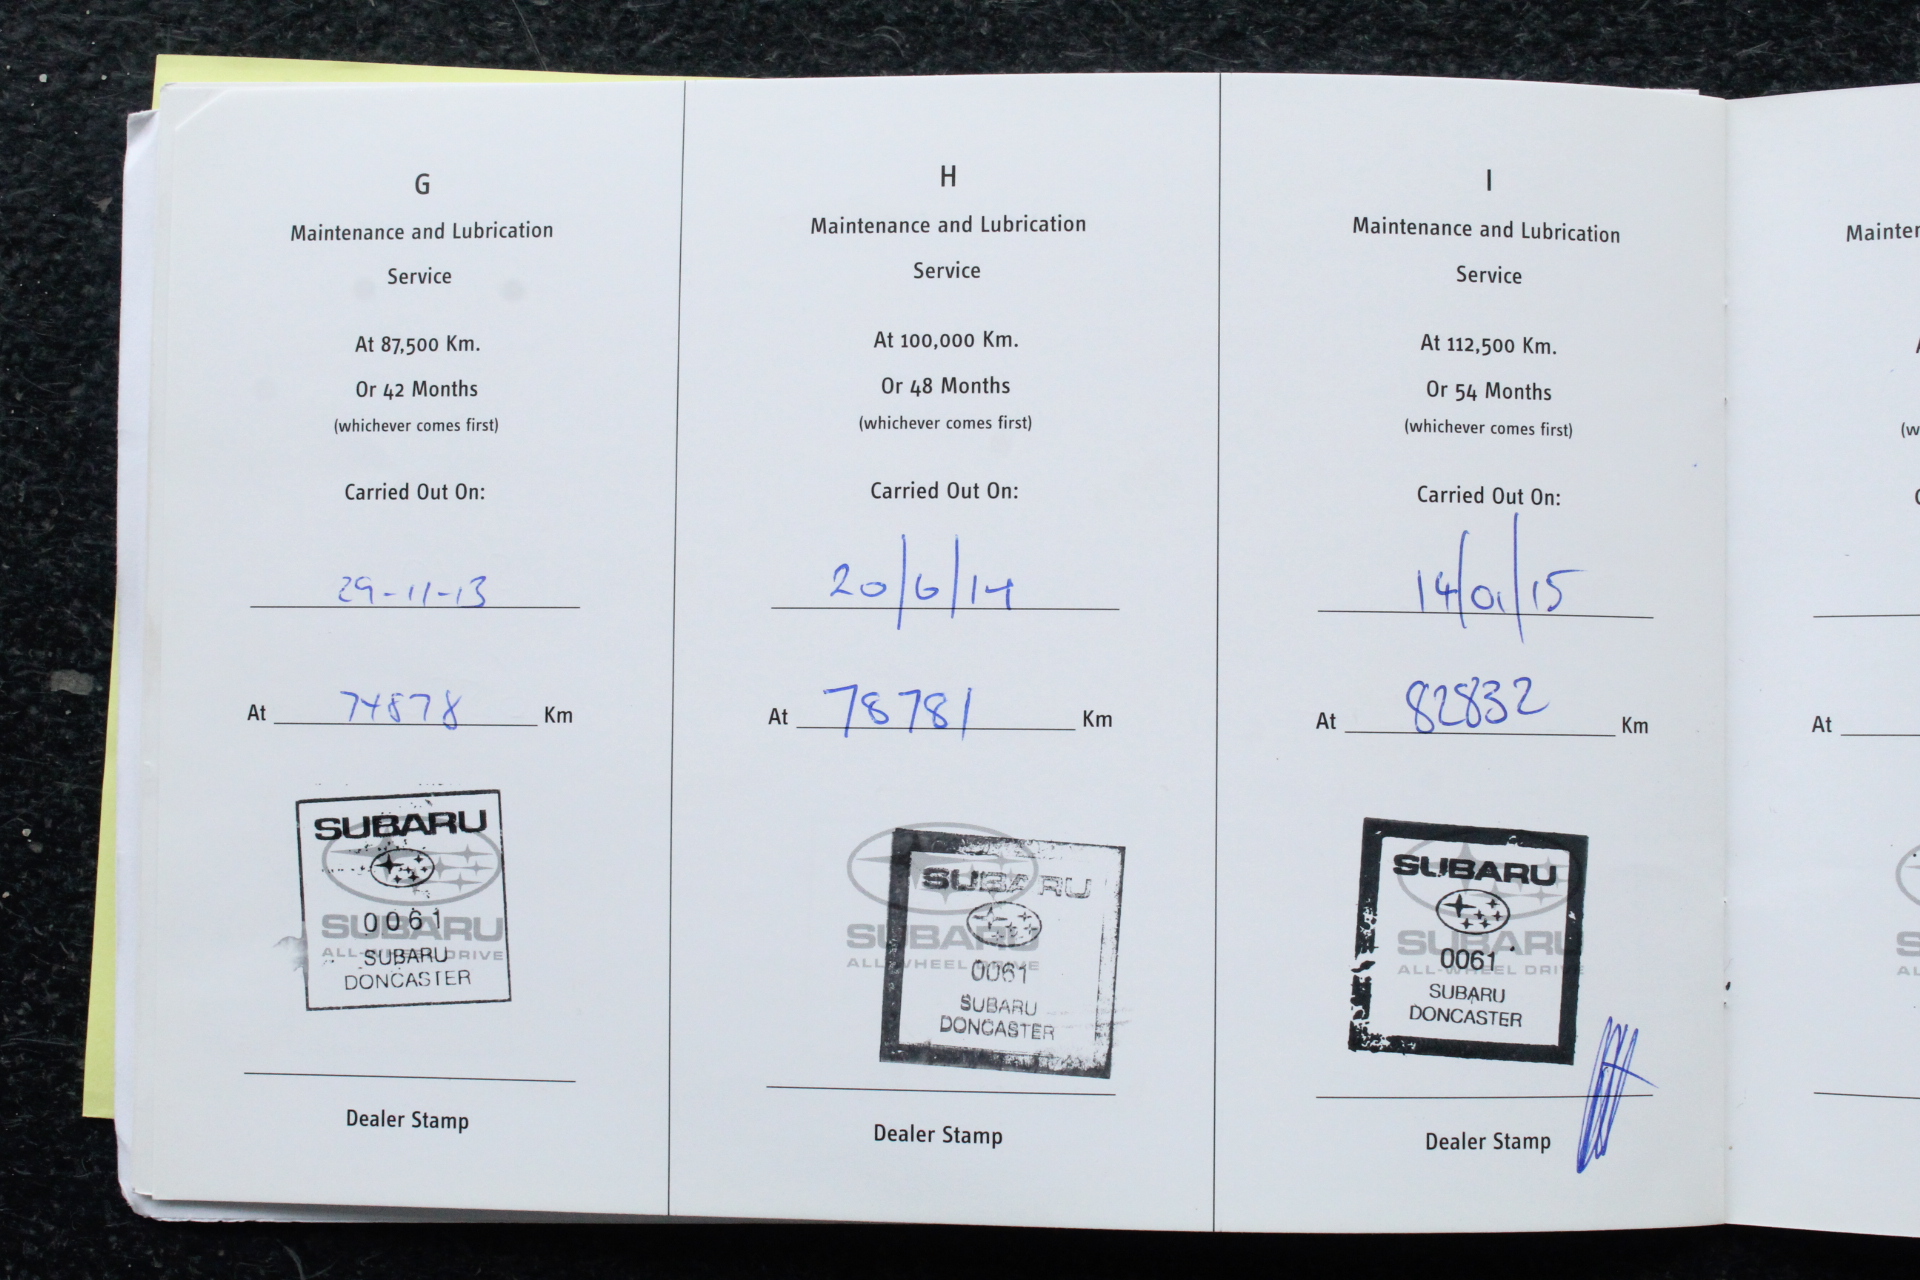 G
Maintenance and Lubrication
Service
At 87,500 Km.
Or 42 Months
(whichever comes first)
Carried Out On:
29-11-13
At 74878 Km
SUBARU
0061
SUBARU
DONCASTER
SUBARU
ALL-WHEEL DRIVE
Dealer Stamp
H
Maintenance and Lubrication
Service
At 100,000 Km.
Or 48 Months
(whichever comes first)
Carried Out On:
20/6/14
At 78781 Km
SUBARU
0061
SUBARU
DONCASTER
SUBARU
ALL-WHEEL DRIVE
Dealer Stamp
I
Maintenance and Lubrication
Service
At 112,500 Km.
Or 54 Months
(whichever comes first)
Carried Out On:
14/01/15
At 82832 Km
SUBARU
0061
SUBARU
DONCASTER
SUBARU
ALL-WHEEL DRIVE
Dealer Stamp
At